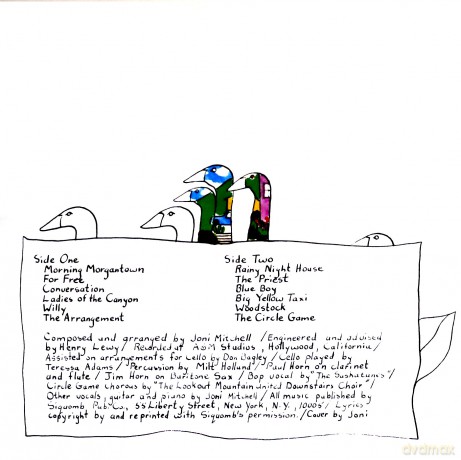 Side One
Morning Morgantown
For Free
Conversation
Ladies of the Canyon
Willy
The Arrangement
Side Two
Rainy Night House
The Priest
Blue Boy
Big Yellow Taxi
Woodstock
The Circle Game
Composed and arranged by Joni Mitchell / Engineered and advised
by Henry Lewy / Recorded at A&M Studios, Hollywood, California /
Assisted on arrangements for Cello by Don Bagley / Cello played by
Teressa Adams / Percussion by Milt Holland / Paul Horn on Clarinet
and Flute / Jim Horn on Baritone Sax / Bop vocal by "The Saskatunes" /
Circle Game Chorus by "The Lookout Mountain United Downstairs Choir" /
Other vocals, guitar and piano by Joni Mitchell / All music published by
Siquomb Pub. Co., 55 Liberty Street, New York, N.Y., 10005 / Lyrics
copyright by and reprinted with Siquomb's permission. / Cover by Joni
avdmax